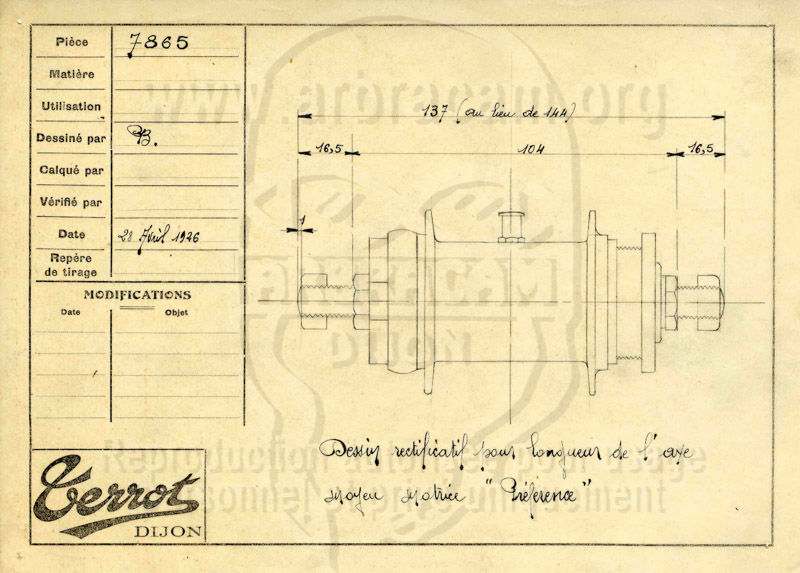 Pièce 7865
Matière
Utilisation
Dessiné par B.
Calqué par
Vérifié par
Date 28 Avril 1926
Repère
de tirage
MODIFICATIONS
Date Objet
Terrot
DIJON
137 (au lieu de 144)
16,5 104 16,5
1
Dessin rectificatif pour longueur de l'axe
moyeu motrice "Préférence"
www.arbracam.org
ARBRACAM
DIJON
Reproduction autorisée pour usage
personnel reprise uniquement